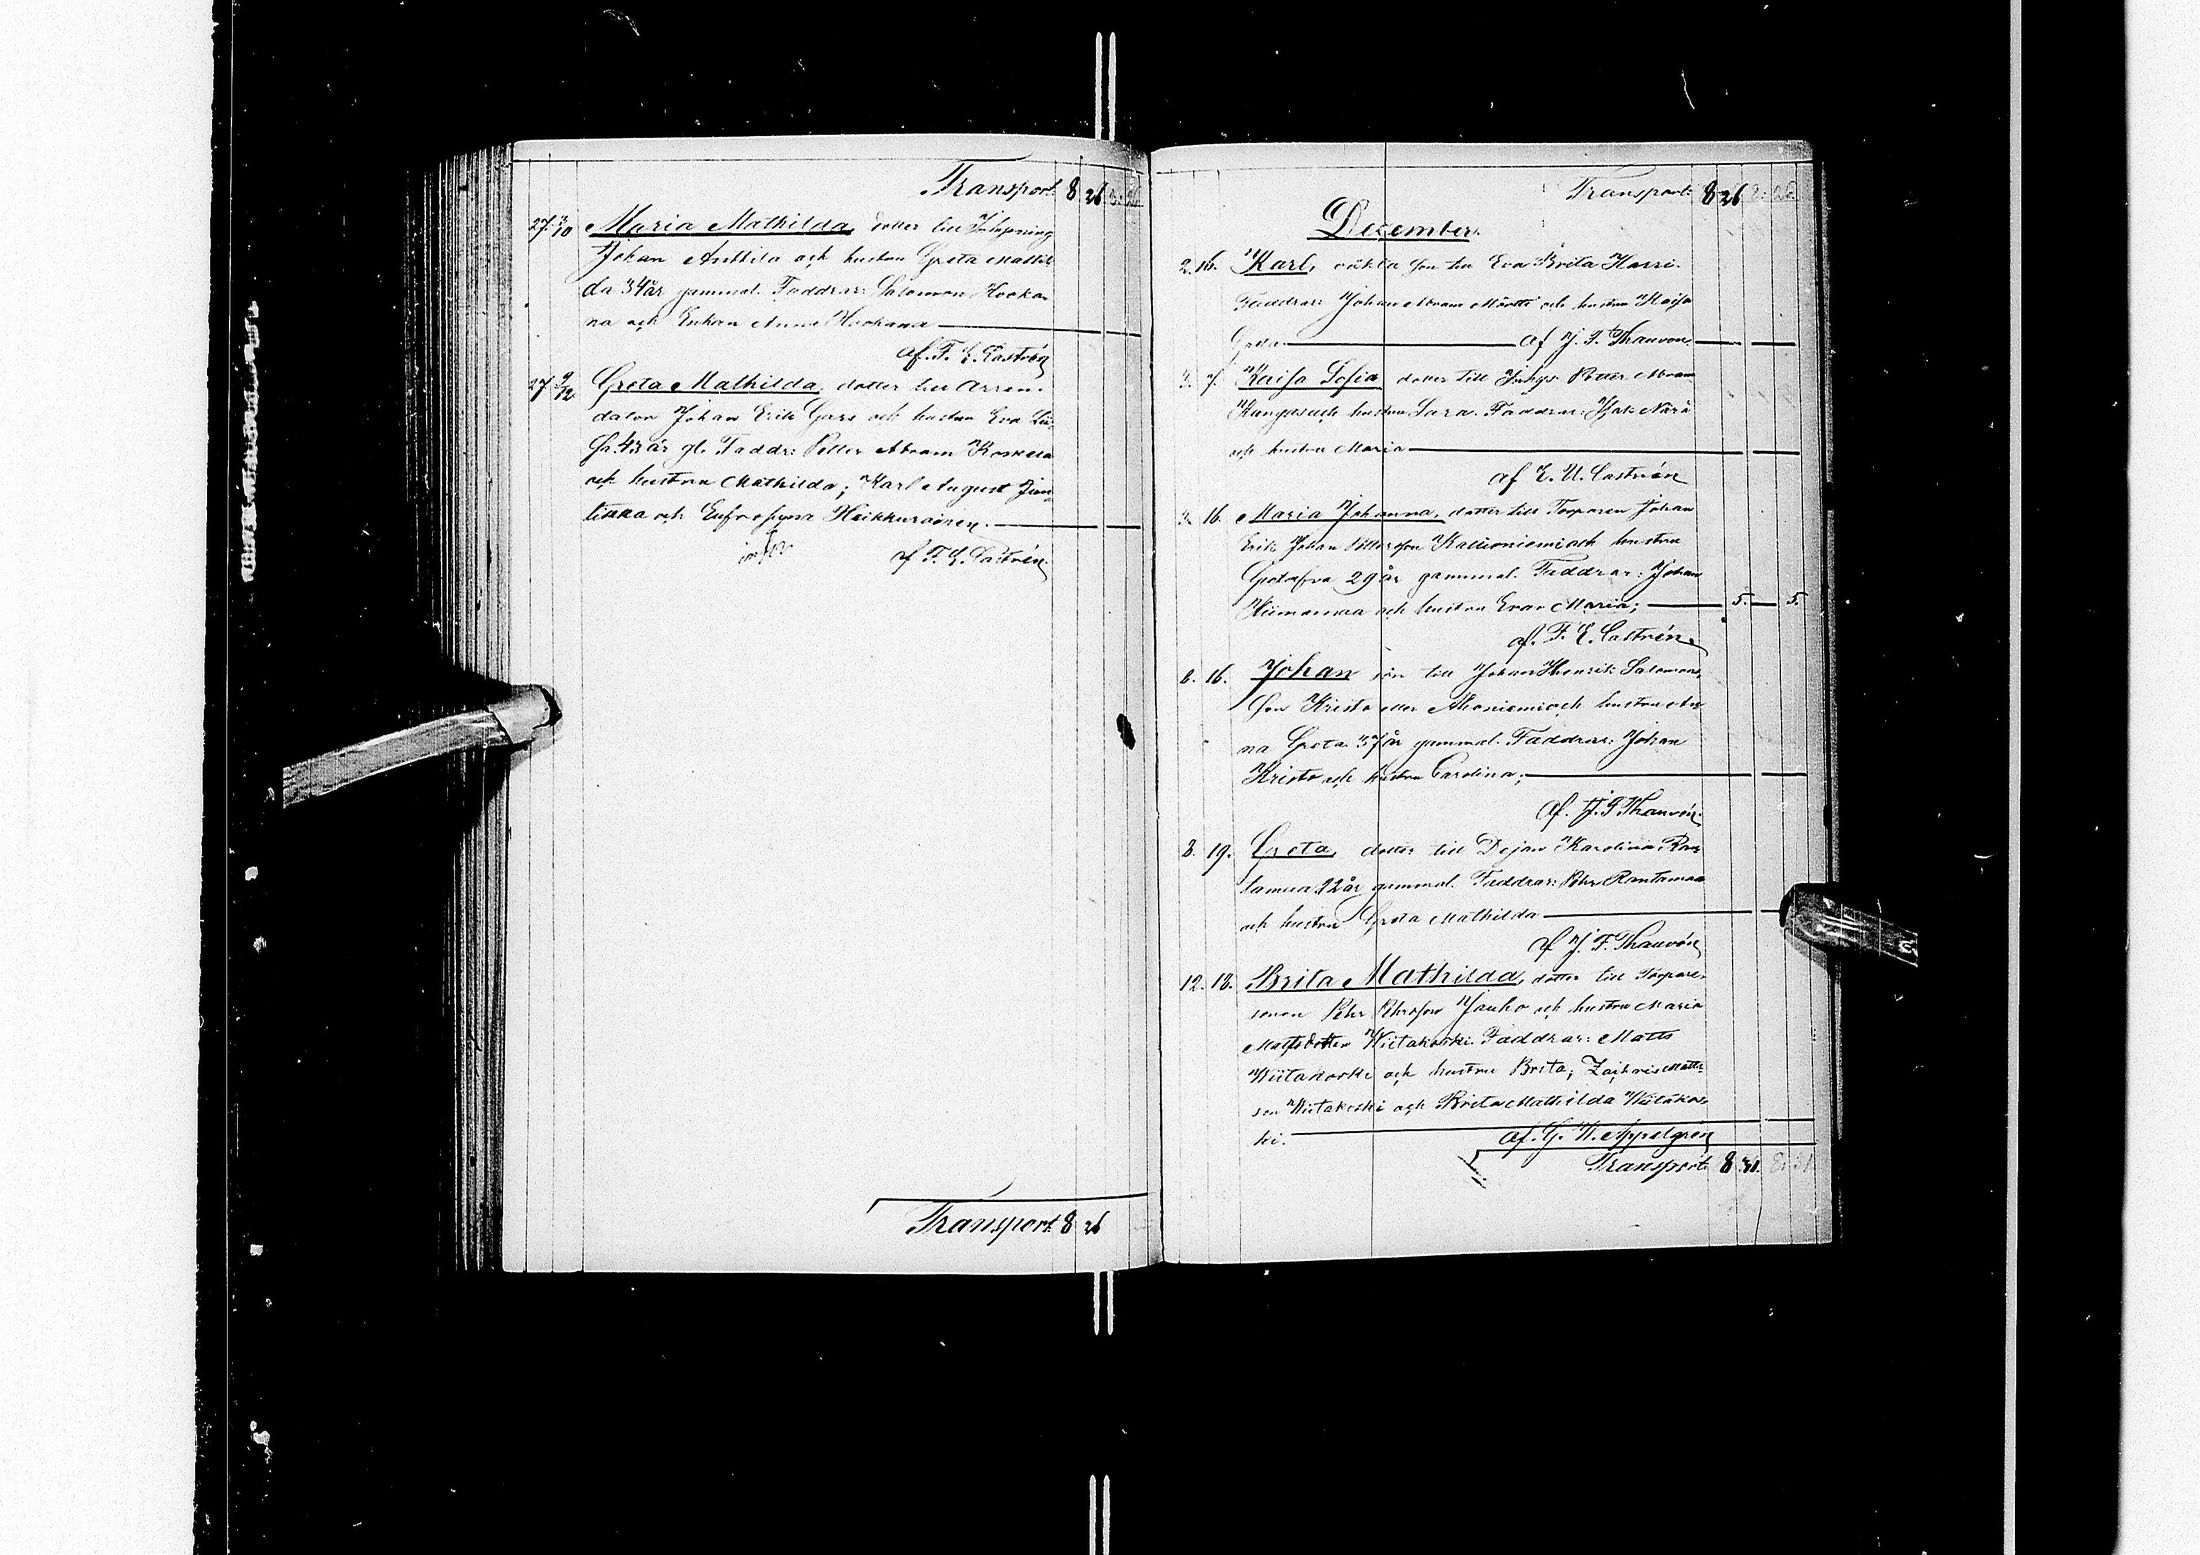 Transport 8 26
27 3/10 Maria Mathilda, dotter till Inhysning
Johan Anttila och hustru Greta Mathil-
da 34 år gammal. Faddrar: Salomon Hooka-
na och Enkan Anna Hookana
af. F. E. Castrén
27 9/12 Greta Mathilda, dotter till Arren-
datorn Johan Erik Gars och hustru Eva Lii-
sa 43 år gl. Faddr: Petter Abram Koskela
och hustru Mathilda; Karl August Jun-
tikka och Eufrosyna Heikkurainen.
af F. E. Castrén
Transport 8 26
Transport 8 26 8. 26
Dezember.
2. 16. Karl, oäkta son till Eva Brita Harri.
Faddrar: Johan Abram Martti och hustru Kaisa
Greta. af J. F. Thauvón.
3. 7. Kaisa Sofia dotter till Inhys: Petter Abram
Kangas och hustru Sara. Faddrar: Isak Närä
och hustru Maria
af E. U. Castrén
3. 16. Maria Johanna, dotter till Torparen Johan
Erik Johan Pettersson Kallioniemi och hustru
Greta Eva 29 år gammal. Faddrar: Johan
Niemamaa och hustru Eva Maria; 5. 5.
af. F. E. Castrén.
6. 16. Johan son till Johan Henrik Salomons-
son Kristo eller Ahoniemi och hustru An-
na Greta 37 år gammal. Faddrar: Johan
Kristo och hustru Carolina;
af. J. F. Thauvón.
8. 19. Greta, dotter till Dejan Karolina Ran-
tamaa 22 år gammal. Faddrar: Pehr Rantamaa
och hustru Greta Mathilda
af J. F. Thauvón
12. 18. Brita Mathilda, dotter till Torpare-
sonen Pehr Pehrsson Jauho och hustru Maria
Matsdotter Wiitakoski. Faddrar: Matts
Wiitakoski och hustru Brita; Zachris Matts-
son Wiitakoski och Brita Mathilda Wiitakos-
ki. af. G. W. Appelgren
Transport 8 31. 8. 31